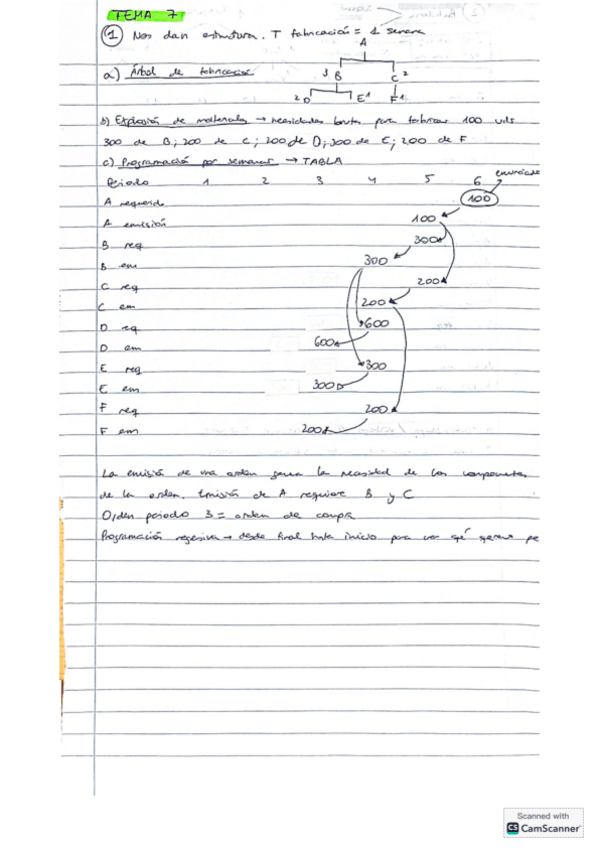 TEMA 7
1 Nos dan estructura. T fabricación = 1 semana
A
a) Árbol de fabricación 3 B C 2
2 D E 1 F 1
b) Explosión de materiales → necesidades brutas para fabricar 100 uds
300 de B; 200 de C; 200 de D; 300 de E; 200 de F
c) Programación por semanas → TABLA
enunciado
Periodo 1 2 3 4 5 6
A requerido 100
A emisión 100
B req 300
B em 300
C req 200
C em 200
D req 600
D em 600
E req 300
E em 300
F req 200
F em 200
La emisión de una orden genera la necesidad de los componentes
de la orden. Emisión de A requiere B y C
Orden periodo 3 = orden de compra
Programación regresiva → desde final hasta inicio para ver qé genera pe
Scanned with
CS CamScanner